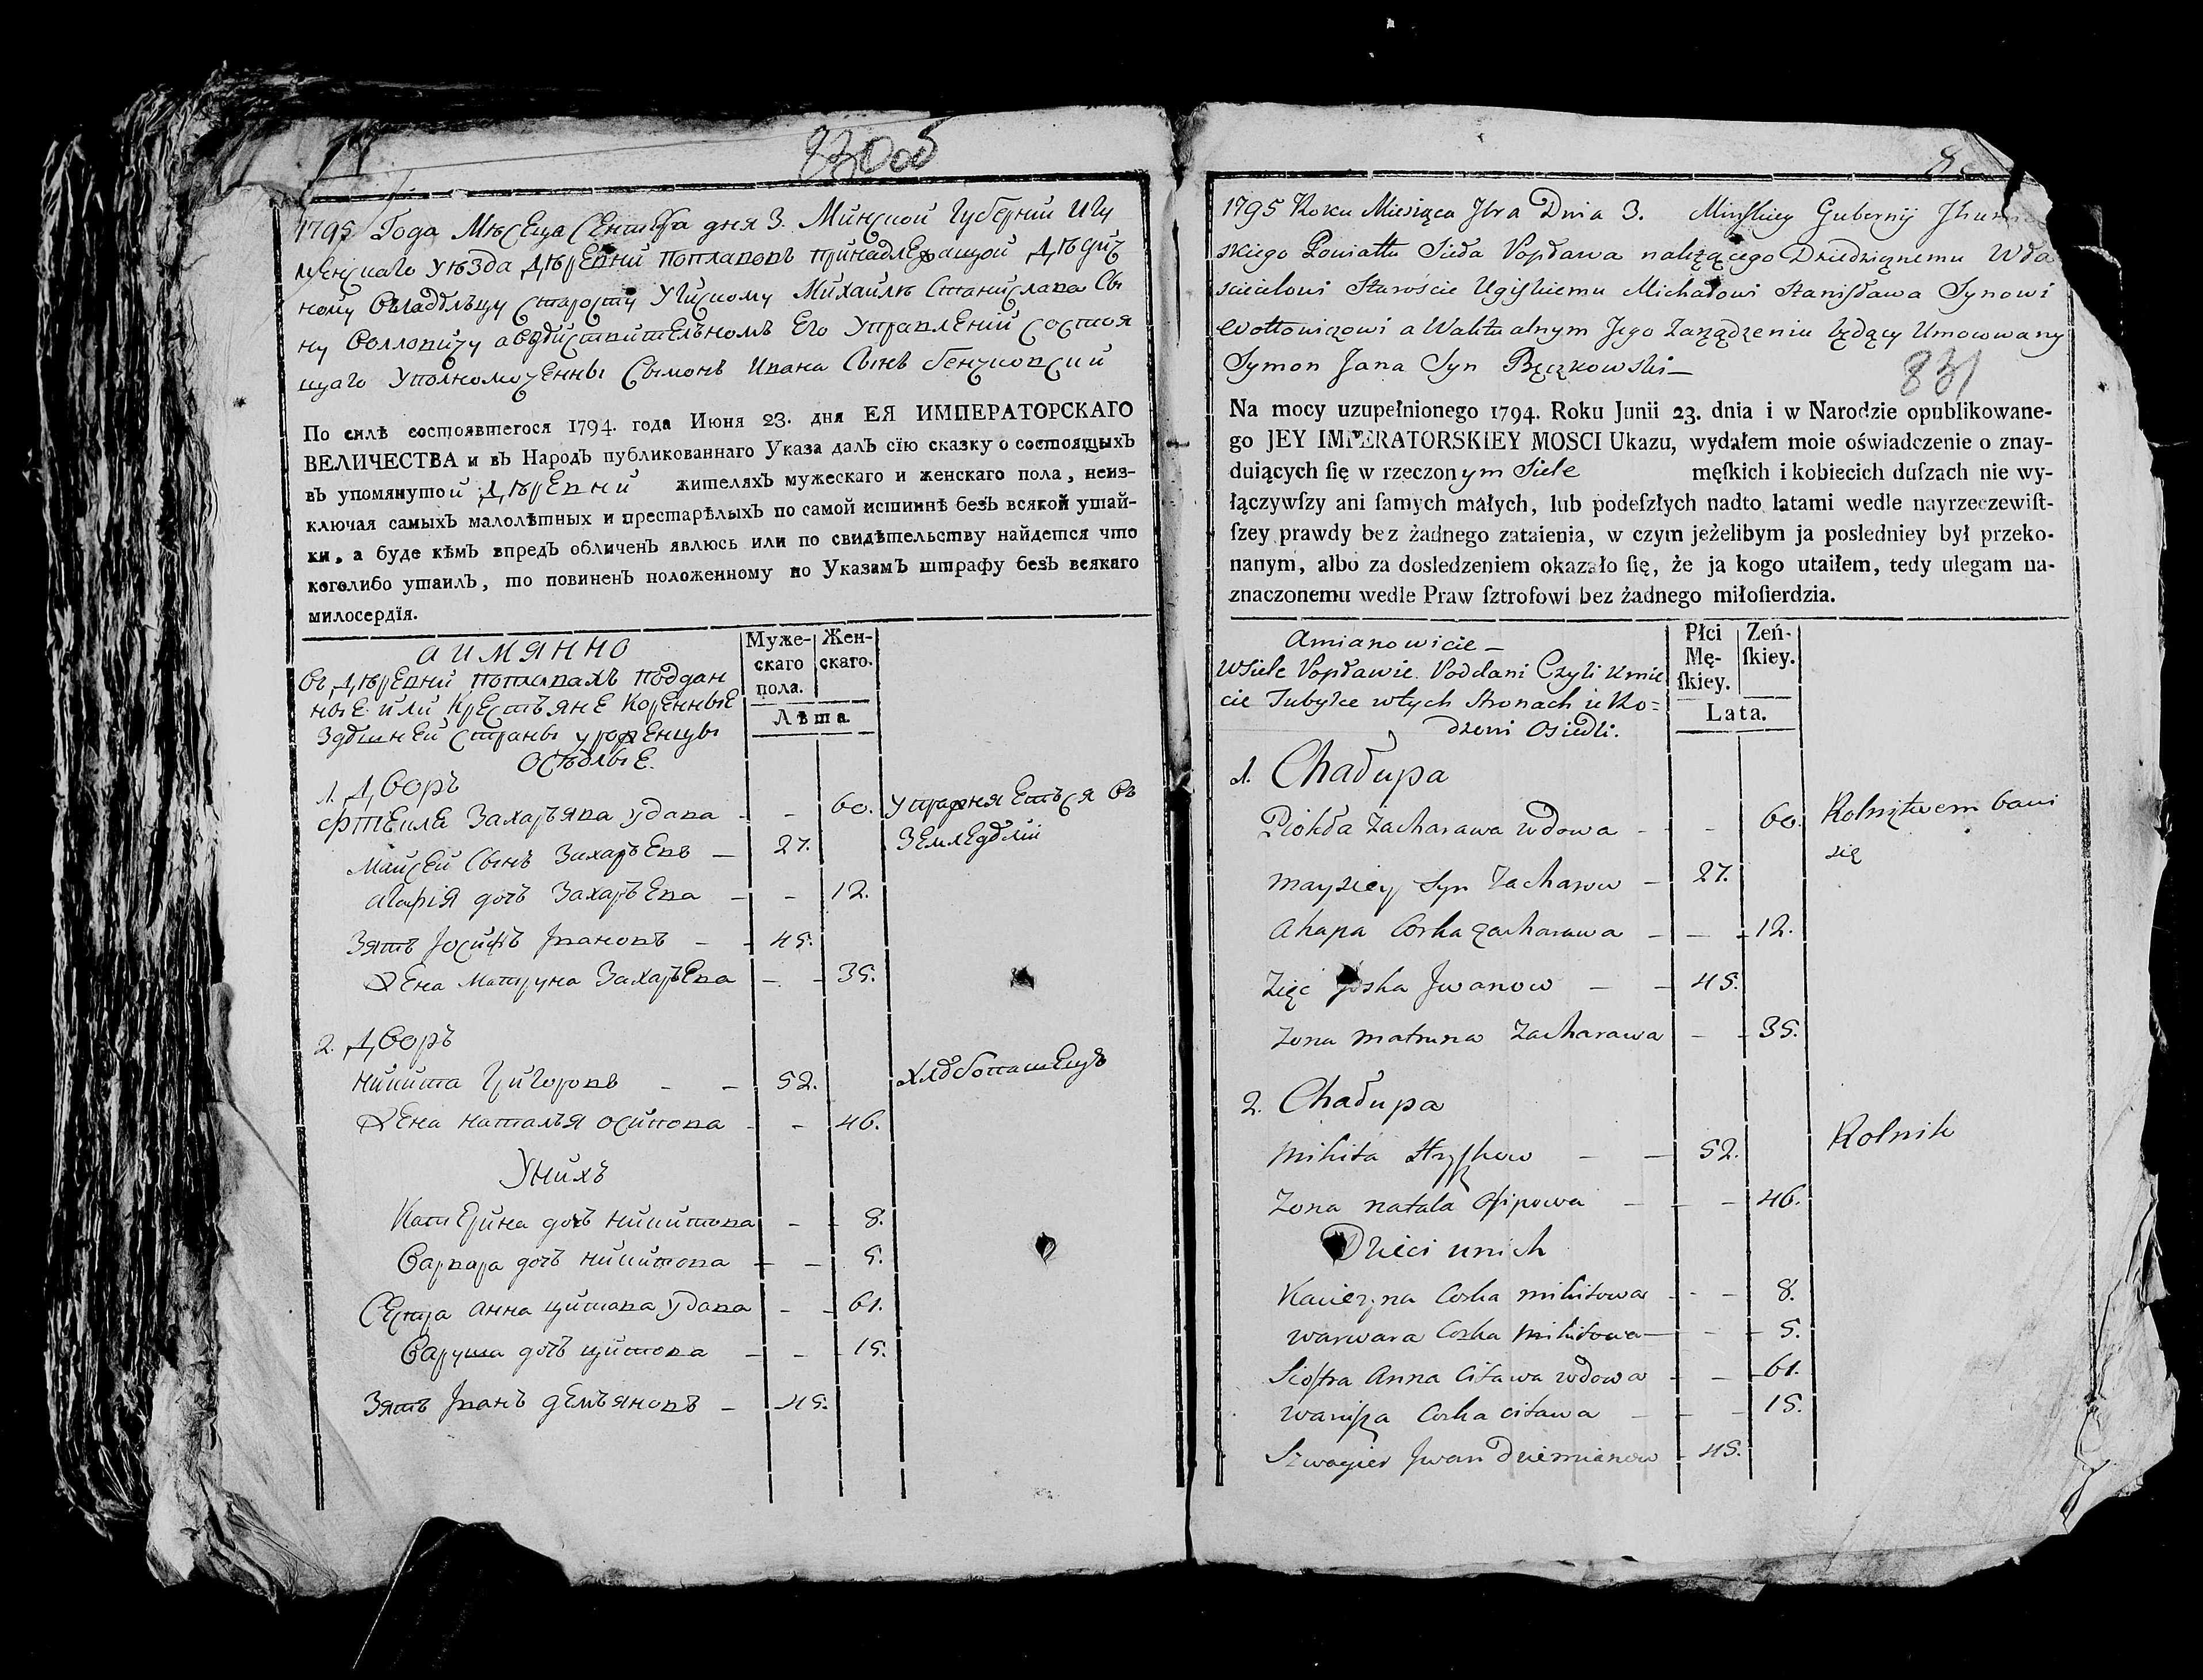 830об
1795 Года Мѣсеца Сентебра дня 3. Минской Губернии Игу
менскаго уѣзда Дѣревни Поплавовъ принадлежащой Дѣдич
ному Овладѣльцу Старосты Угискому Михайлѣ Станислава Сы
ну Волловичу а вдѣйствительномъ Его Управлении состоя
щаго Уполномоченны Сымонъ Ивана Сынъ Бенчковский
По силѣ состоявшегося 1794. года Июня 23. дня ЕЯ ИМПЕРАТОРСКАГО
ВЕЛИЧЕСТВА и въ Народъ публикованнаго Указа далъ сїю сказку о состоящыхъ
въ упомянутой Дѣревни жителяхъ мужескаго и женскаго пола, неиз-
ключая самыхъ малолѣтных и престарѣлыхъ по самой истиннѣ безъ всякой утай-
ки, а буде кѣмъ впредъ обличенъ явлюсь или по свидѣтельству найдется что
коголибо утаилъ, то повиненъ положенному по Указамъ штрафу безъ всякаго
милосердїя.
аимянно
Въ Дѣревни Поплавахъ поддан
ные или Крестъяне Коренные
Здѣшней страны урожЕнцы
осѣдлые.
Муже-
скаго
пола.
Жен-
скаго.
Лѣта
1. Дворъ
Фтекла Захаръява удава - - 60. УпражняЕтъся въ
Земледѣлїи
Майсей Сынъ Захаръевъ - 27.
Агафїя дочъ Захаръева - - 12.
Зятъ Iосифъ Iвановъ - - 45.
Жена Матруна Захаръева - - 35.
2. Дворъ
Никита Григоровъ - - 52. Хлѣбопашецъ
Жена Наталъя Осипова - - 46.
Унихъ
КатЕрина дочъ Никитова - - 8.
Варвара дочъ Никитова - - 5.
Сестра Анна Цитава удава - - 61.
Варуша дочъ Цитова - - 15.
Зятъ Iванъ Демъяновъ - 45.
1795 Roku Miesiąca 7bra Dnia 3. Minskiey Gubernij Jhum
skiego Powiattu Sieła Popława należącego Dziedzicznemu Wła
scicielowi Staroście Ugiskiemu Michałowi Stanisława Synowi
Wołłowiczowi a Waktualnym Jego Zarządzeniu będący Umocowany
Symon Jana Syn Bęczkowski -
831
Na mocy uzupełnionego 1794. Roku Junii 23. dnia i w Narodzie opublikowane-
go JEY IMPERATORSKIEY MOSCI Ukazu, wydałem moie oświadczenie o znay-
duiących ſię w rzeczonym Siele męſkich i kobiecich duſzach nie wy-
łączywſzy ani ſamych małych, lub podeſzłych nadto latami wedle nayrzeczewiſt-
ſzey prawdy bez żadnego zataienia, w czym jeżelibym ja posledniey był przeko-
nanym, albo za dosledzeniem okazało ſię, że ja kogo utaiłem, tedy ulegam na-
znaczonemu wedle Praw ſztrofowi bez żadnego miłoſierdzia.
Amianowicie -
Wsiele Popławie Poddani Czyli kmie
cie Tubylce wtych Stronach uRo=
dzeni Osiedli.
Płci
Mę-
ſkiey.
Zeń-
ſkiey.
Lata.
1. Chałupa
Piokła Zacharawa wdowa - - 60. Rolnictwem bawi
się
Maysiey Syn Zacharow - 27.
Ahapa Corka Zacharawa - - 12.
Zięc Joska Jwanow - - 45.
Zona Matruna Zacharawa - - 35.
2. Chałupa
Mikita Hryſkow - - 52. Rolnik
Zona Natala Osipowa - - - 46.
Dzieci unich
Kacieryna Corka Mikitowa - - 8.
Warwara Corka Mikitowa - - - 5.
Siostra Anna Citawa wdowa - - 61.
Warusza Corka Citawa - - - 15.
Szwagier Jwan Dziemianow - 45.